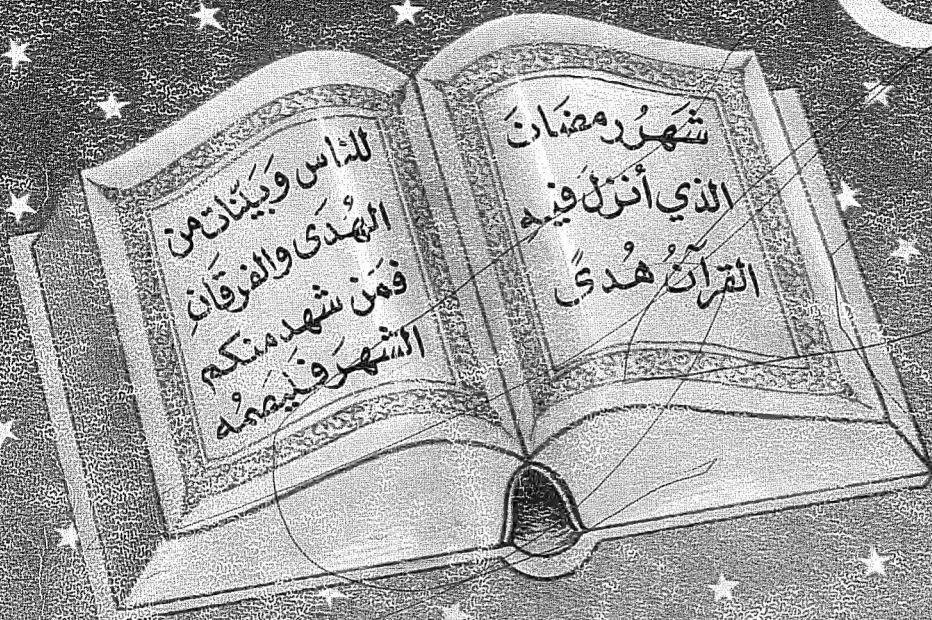 شَهرُ رمضَانَ
الذي أنزلَ فيه
القرآنُ هُدىً
للناس وَبَيّنات من
الهُدَى والفرقَانِ
فمَن شهد منكم
الشهرَ فَليَصمُه